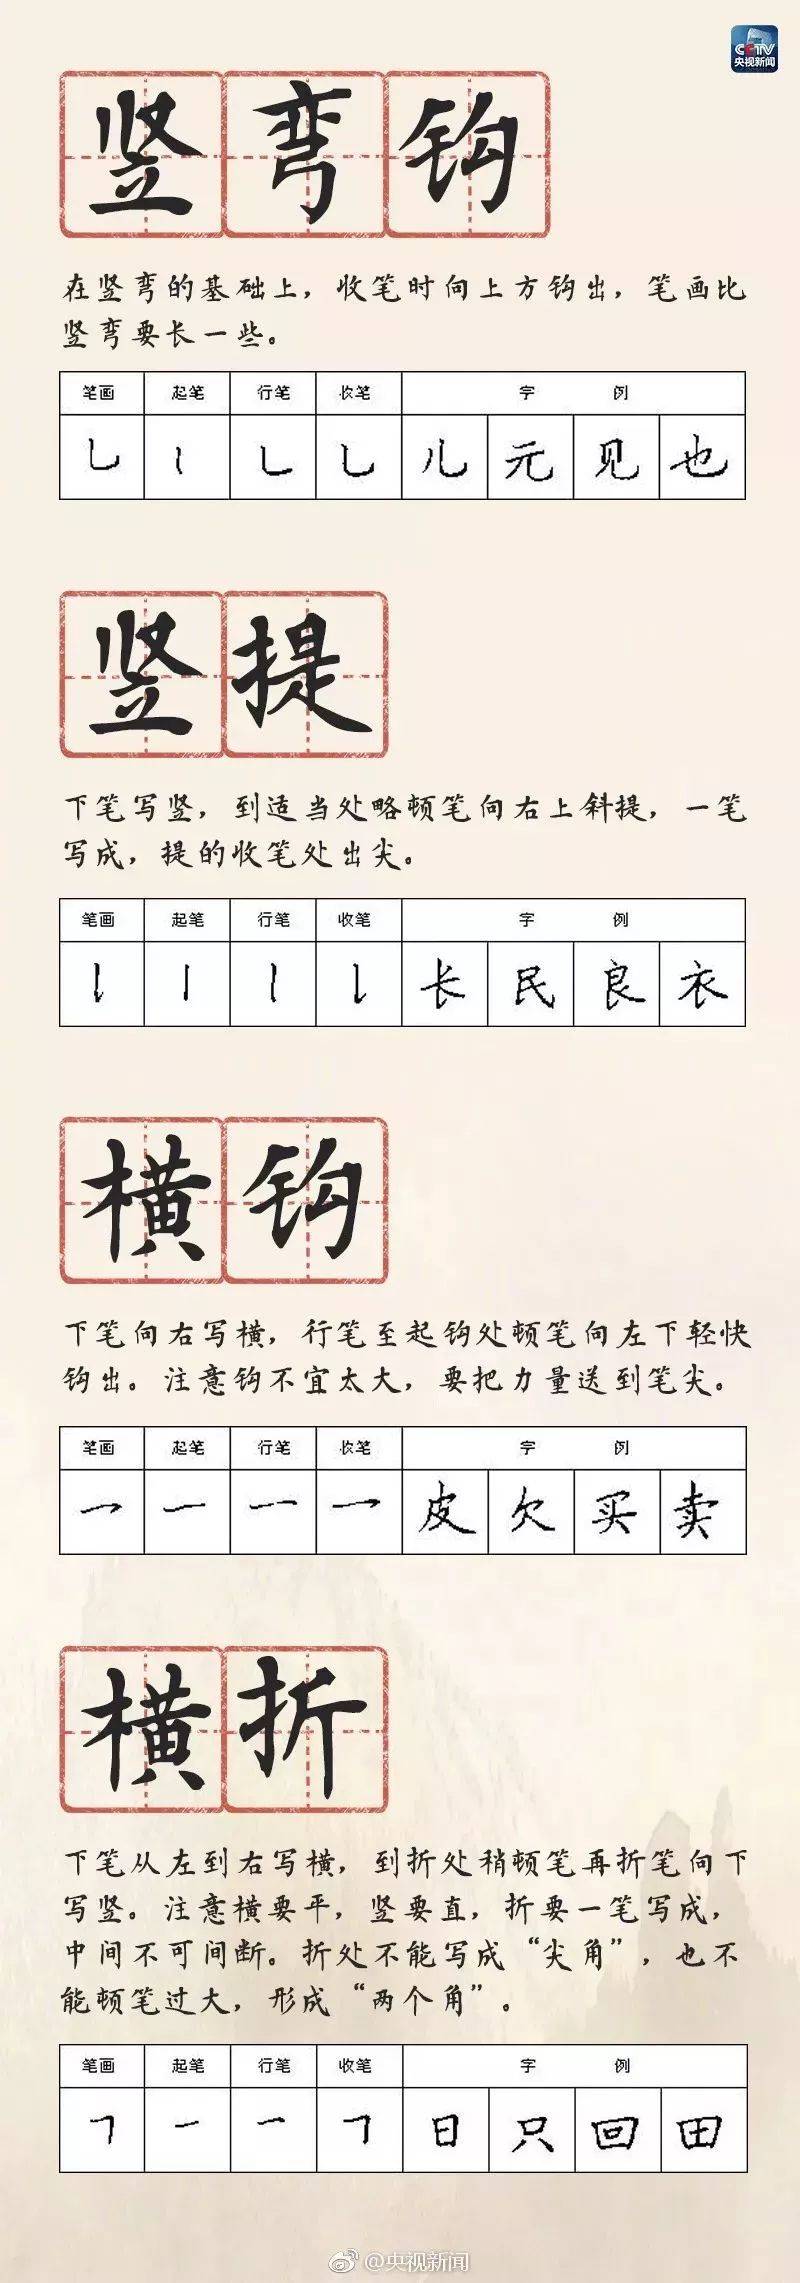 CCTV
央视新闻
竖弯钩
在竖弯的基础上，收笔时向上方钩出，笔画比
竖弯要长一些。
笔画 起笔 行笔 收笔 字例
乚 丨 ㇄ 乚 儿 元 见 也
竖提
下笔写竖，到适当处略顿笔向右上斜提，一笔
写成，提的收笔处出尖。
笔画 起笔 行笔 收笔 字例
𠄌 丨 丨 𠄌 长 民 良 衣
横钩
下笔向右写横，行笔至起钩处顿笔向左下轻快
钩出。注意钩不宜太大，要把力量送到笔尖。
笔画 起笔 行笔 收笔 字例
乛 一 一 乛 皮 欠 买 卖
横折
下笔从左到右写横，到折处稍顿笔再折笔向下
写竖。注意横要平，竖要直，折要一笔写成，
中间不可间断。折处不能写成“尖角”，也不
能顿笔过大，形成“两个角”。
笔画 起笔 行笔 收笔 字例
𠃍 一 一 𠃍 日 只 回 田
@央视新闻